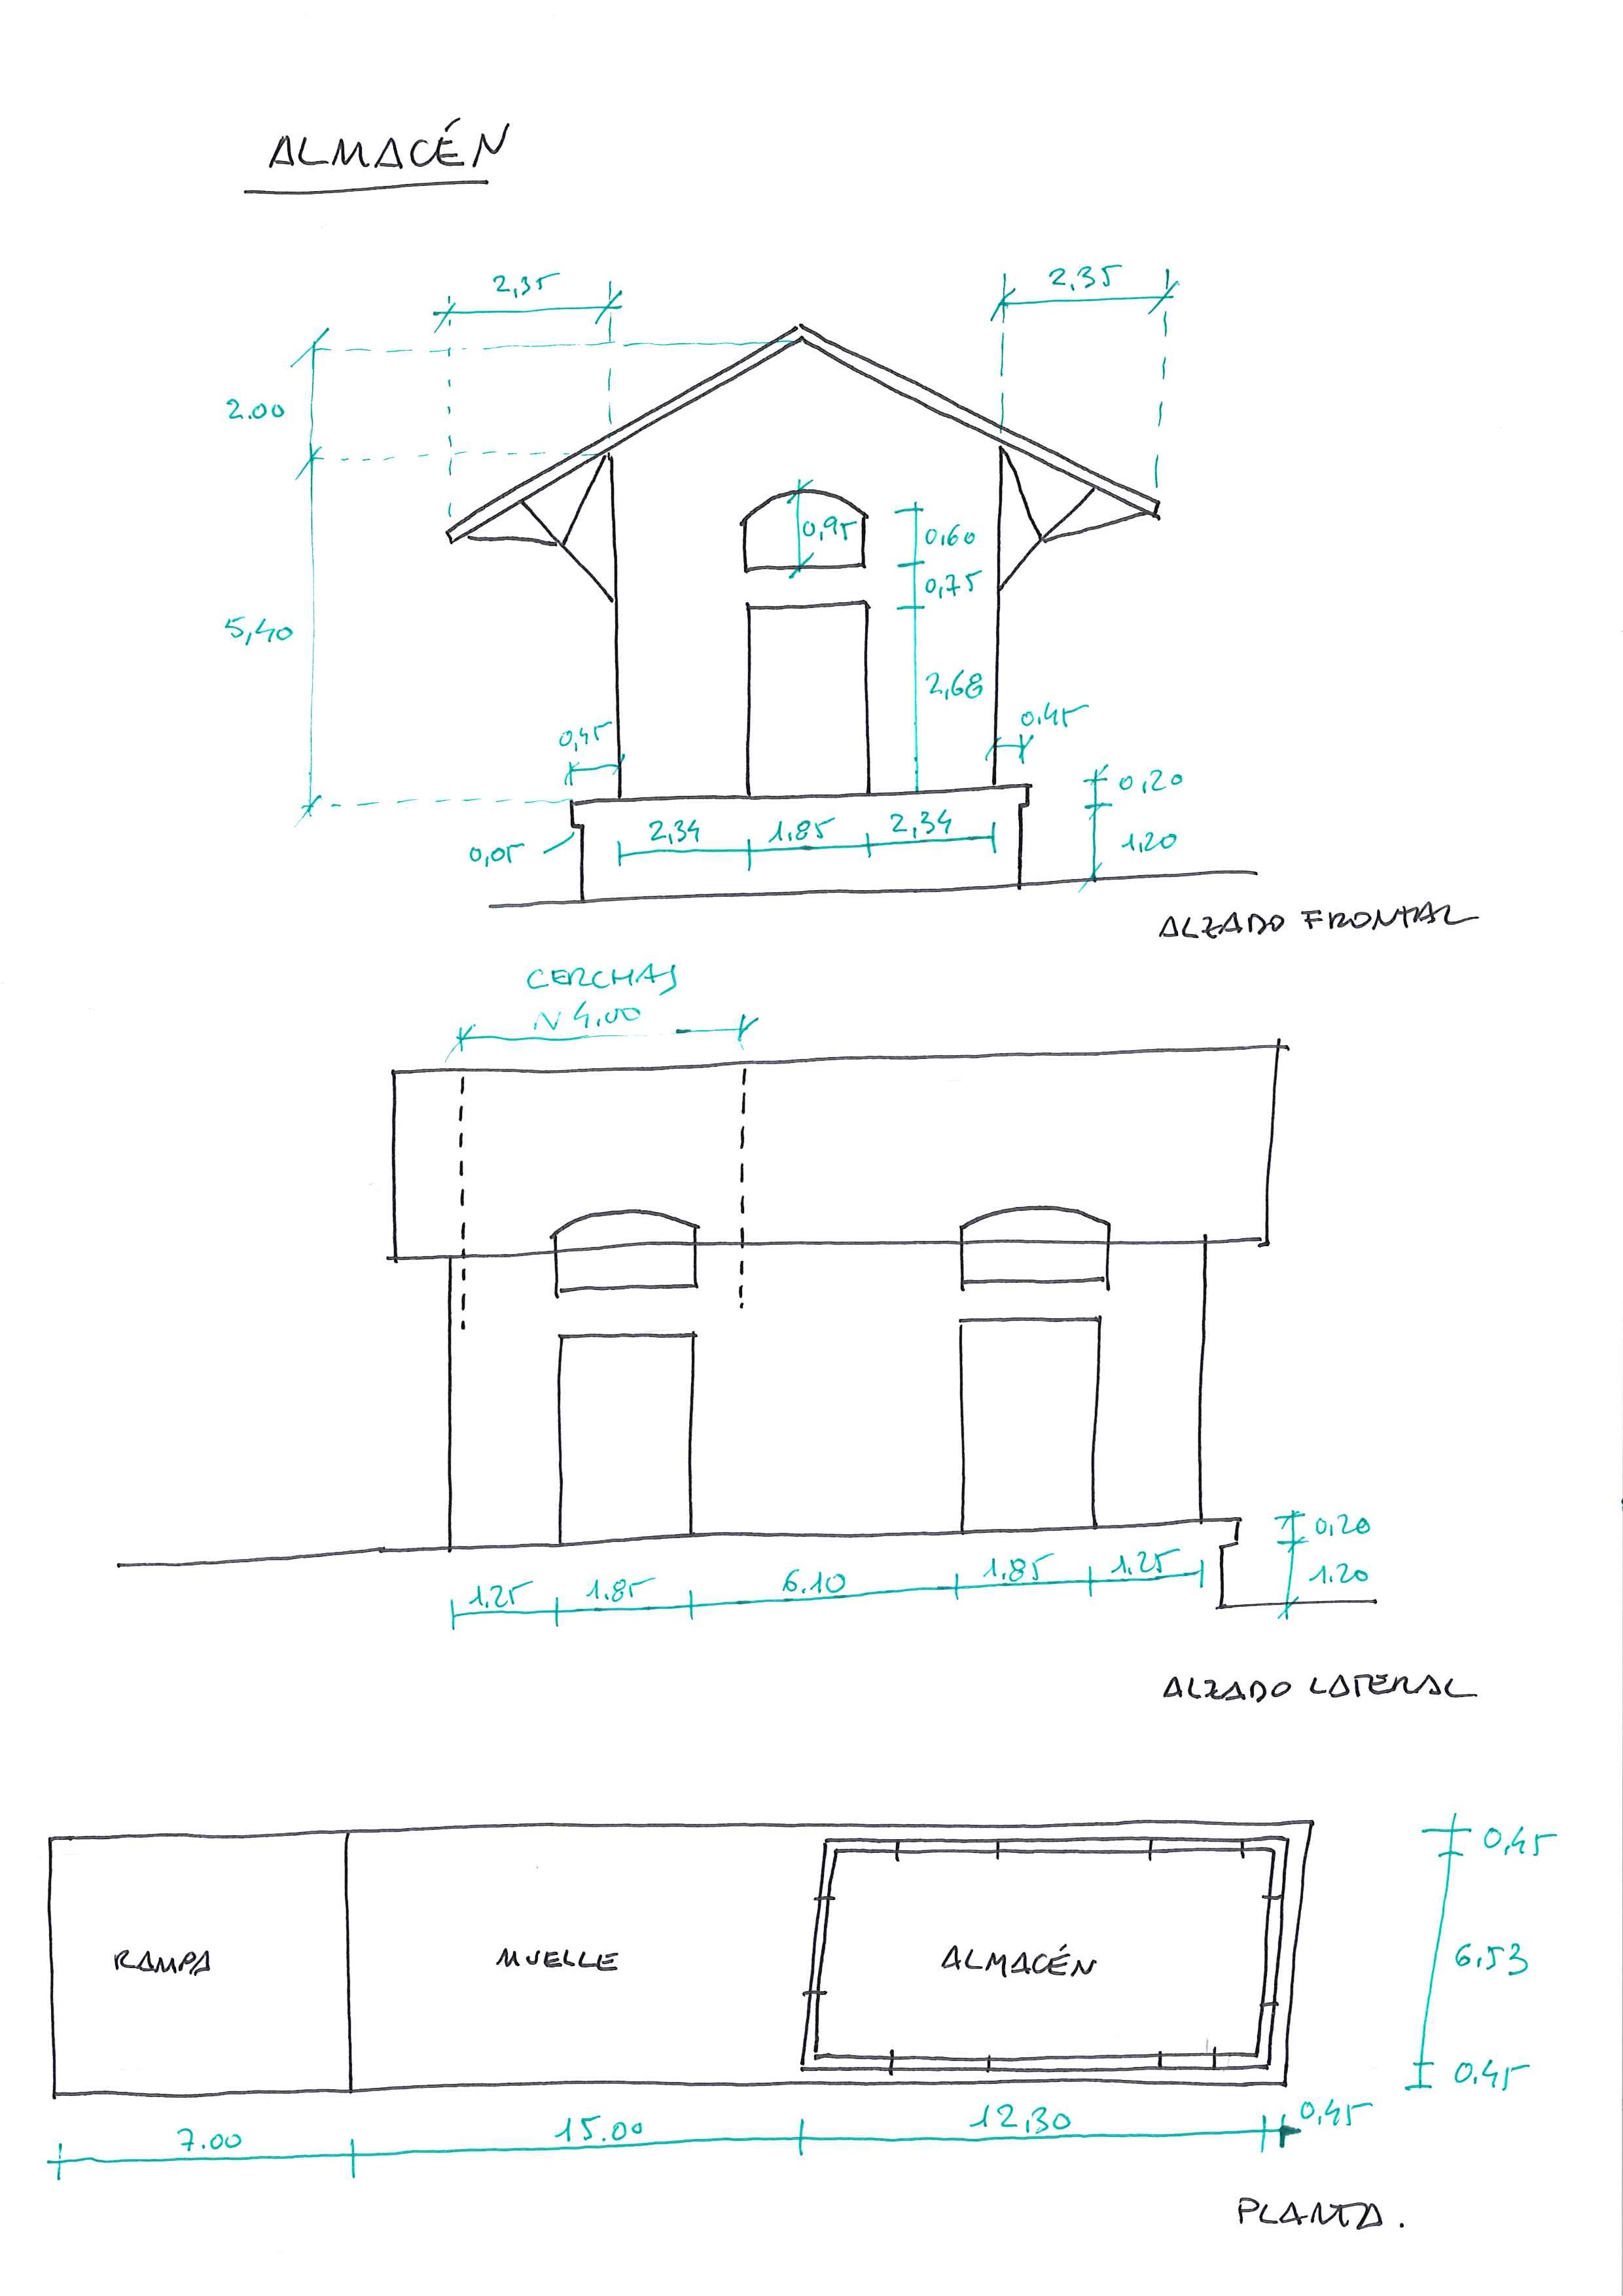 ALMACÉN
2,35
2,35
2.00
0,95
0,60
0,75
5,40
2,68
0,45
0,45
0,20
2,34
1,85
2,34
1,20
0,05
ALZADO FRONTAL
CERCHAS
N 4,00
0,20
1.25
1.85
6.10
1.85
1.25
1.20
ALZADO LATERAL
0,45
RAMPA
MUELLE
ALMACÉN
6,53
0.45
7.00
15.00
12,30
0,45
PLANTA.